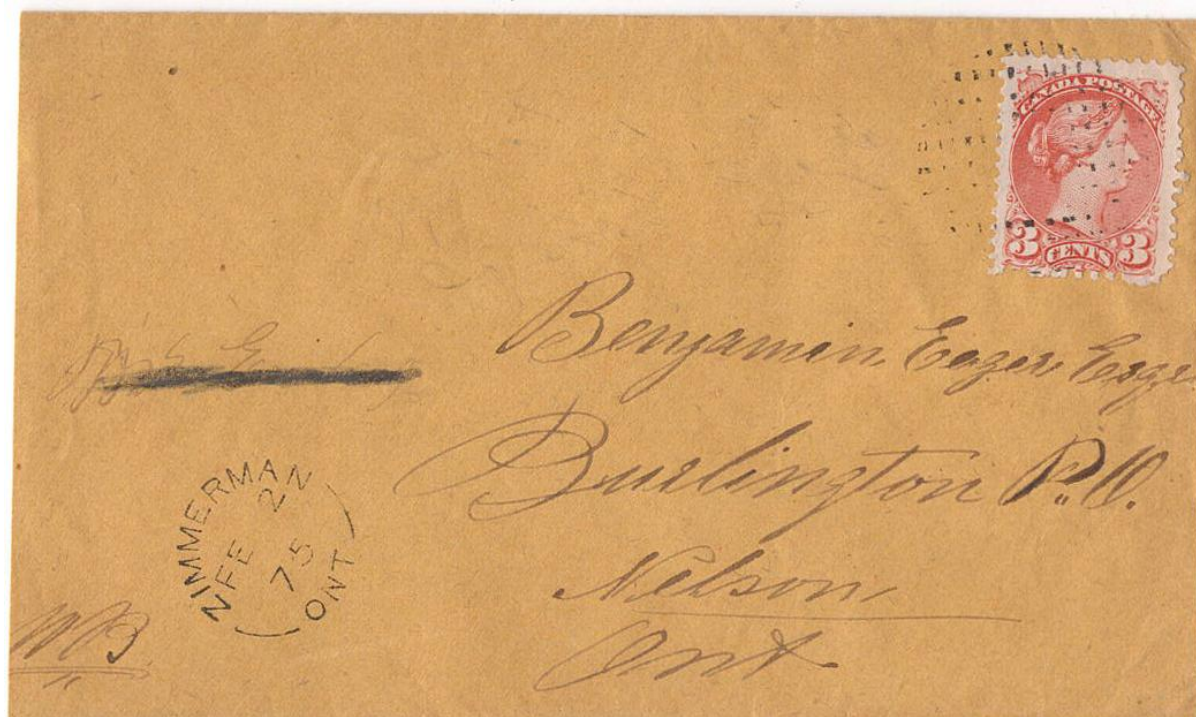 CANADA POSTAGE
3 CENTS 3
Benjamin Eager Esqr
Burlington P.O.
Nelson
Ont
ZIMMERMAN
FE 2
75
ONT